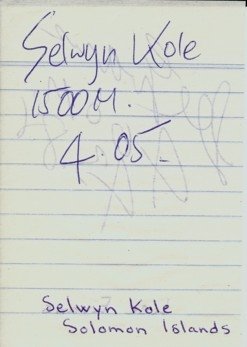 Selwyn Kole
1500M.
4.05-
Selwyn Kole
Solomon Islands